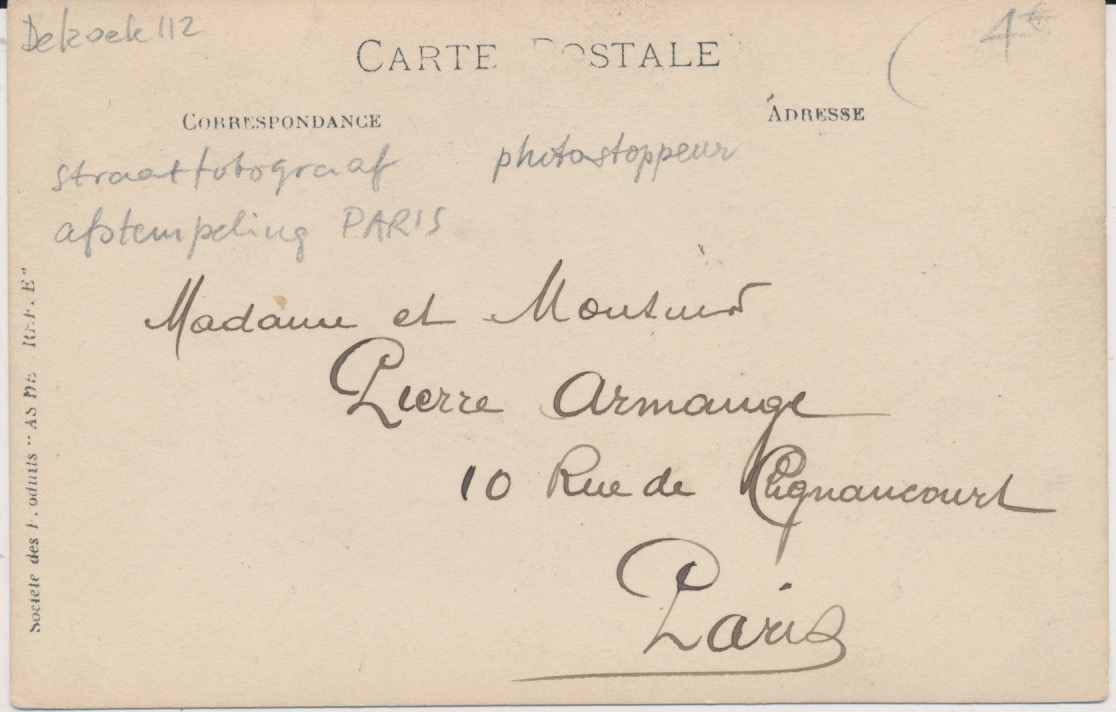 Dekoek 112
4€
CARTE POSTALE
CORRESPONDANCE
ADRESSE
straatfotograaf photostoppeur
afstempeling PARIS
Madame et Monsieur
Pierre Armange
10 Rue de Clignancourt
Paris
Société des Produits "AS DE TREFLE"